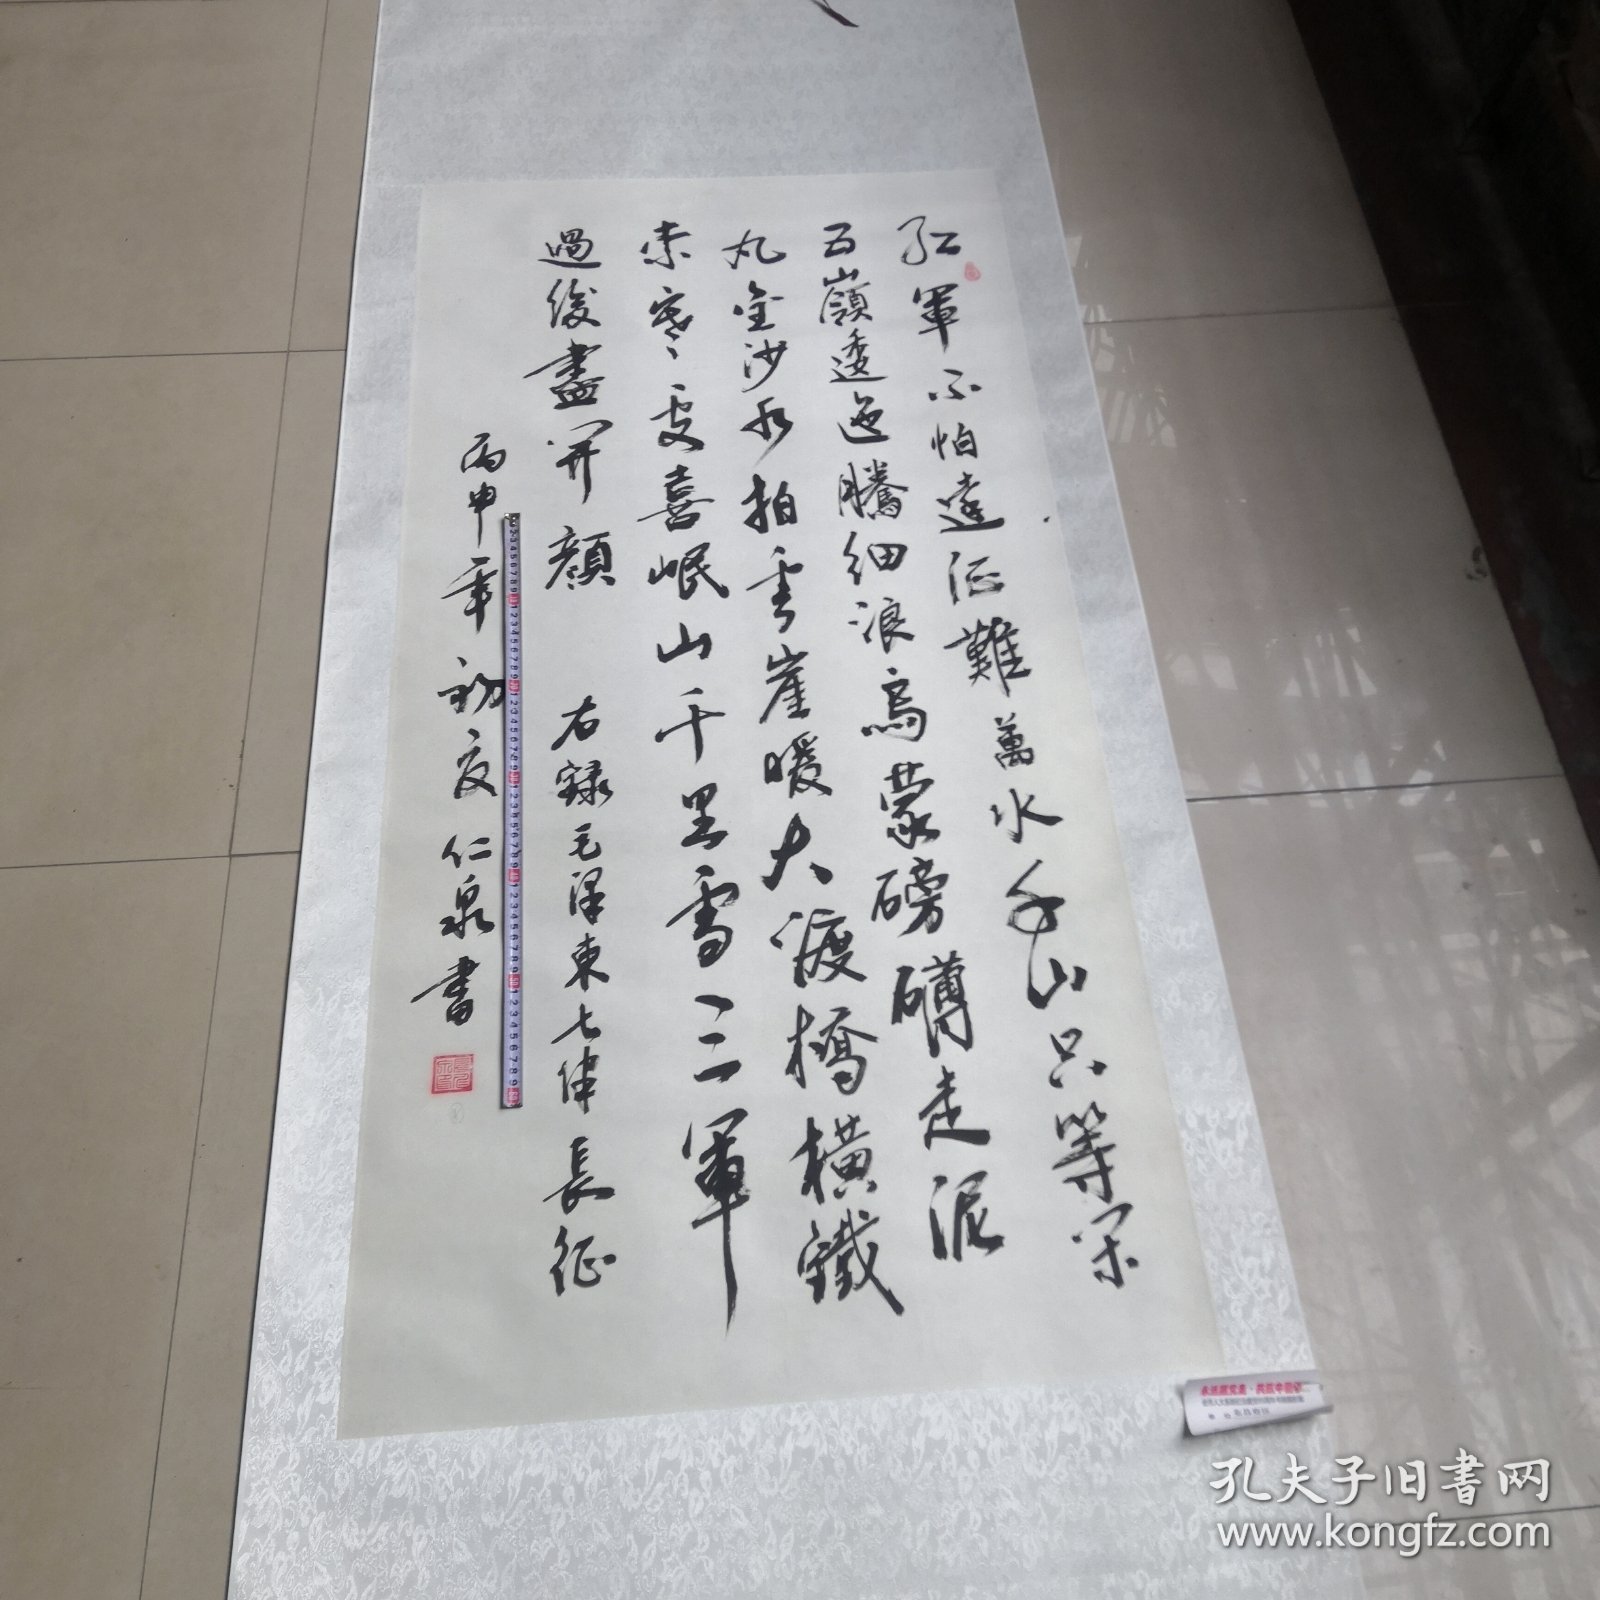 紅軍不怕遠征難萬水千山只等閑
五嶺逶迤騰細浪烏蒙磅礴走泥
丸金沙水拍雲崖暖大渡橋橫鐵
索寒更喜岷山千里雪三軍
過後盡開顏 右録毛澤東七律長征
丙申年初夏仁泉書
孔夫子旧书网
www.kongfz.com